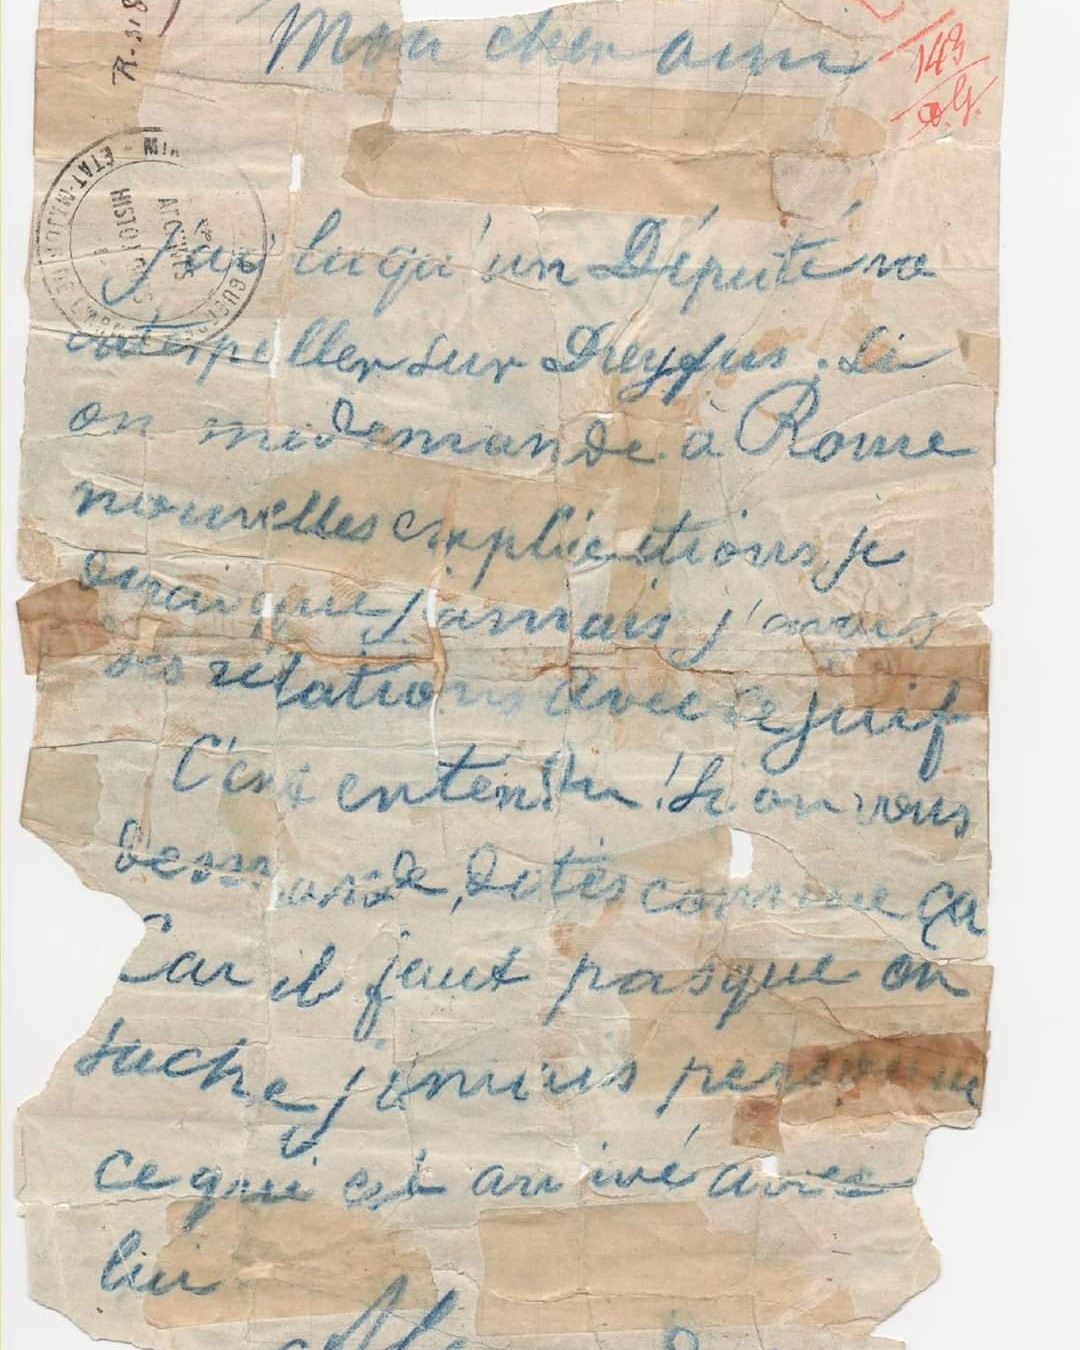 Mon cher ami
J'ai lu qu'un Député va
interpeller sur Dreyfus. Si
on me demande à Rome
nouvelles explications je
dirai que jamais j'avais
des rélations avec ce juif
C'est entendu! Si on vous
demande, dites comme ça
Car il faut pas que on
sache jamais personne
ce qui est arrivé avec
lui
143
ETAT-MAJOR